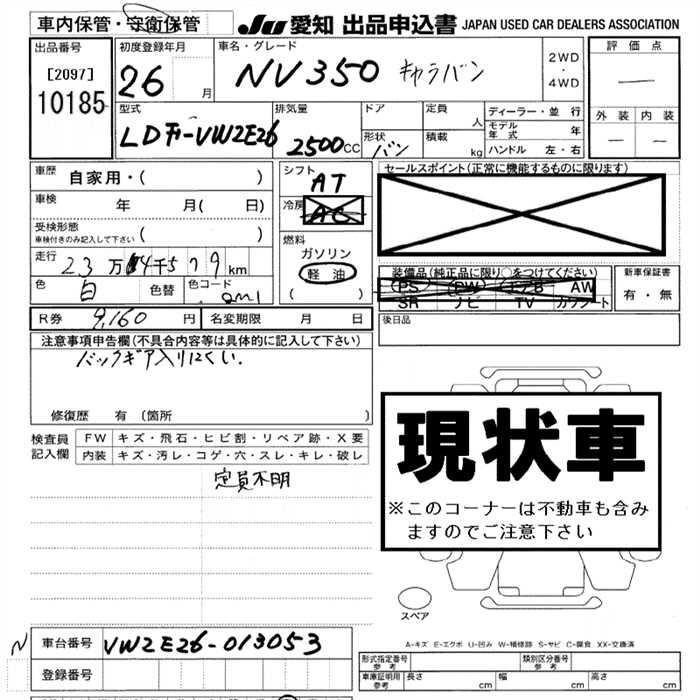 車内保管・守衛保管
JU 愛知 出品申込書 JAPAN USED CAR DEALERS ASSOCIATION
出品番号
[2097]
10185
初度登録年月
26 月
車名・グレード
NV350 キャラバン
2WD
・
4WD
評価点
—
外装 内装
— —
型式
LDF-VW2E26
排気量
2500cc
ドア
形状
バン
定員
人
積載
kg
ディーラー・並行
モデル年式 年
ハンドル 左・右
車歴 自家用・( )
車検 年 月( 日)
受検形態
車検付きのみ記入して下さい ( )
走行 23万 4千5 79 km
色 白 色替 色コード
R券 9,160 円 名変期限 月 日
シフト
AT
冷房
AC
燃料
ガソリン
軽油
( )
セールスポイント(正常に機能するものに限ります)
装備品(純正品に限り○をつけてください)
PS PW エアB AW
SR ナビ TV カワシート
新車保証書
有・無
後日品
注意事項申告欄(不具合内容等は具体的に記入して下さい)
バックギア入りにくい.
修復歴 有 (箇所 )
検査員記入欄
FW キズ・飛石・ヒビ割・リペア跡・X要
内装 キズ・汚レ・コゲ・穴・スレ・キレ・破レ
定員不明
現状車
※このコーナーは不動車も含み
ますのでご注意下さい
スペア
A-キズ E-エクボ U-凹み W-補修跡 S-サビ C-腐食 XX-交換済
N 車台番号 VW2E26-013053
登録番号
形式指定番号
参考
類別区分番号
参考
車庫証明用
参考
長さ cm 幅 cm 高さ cm